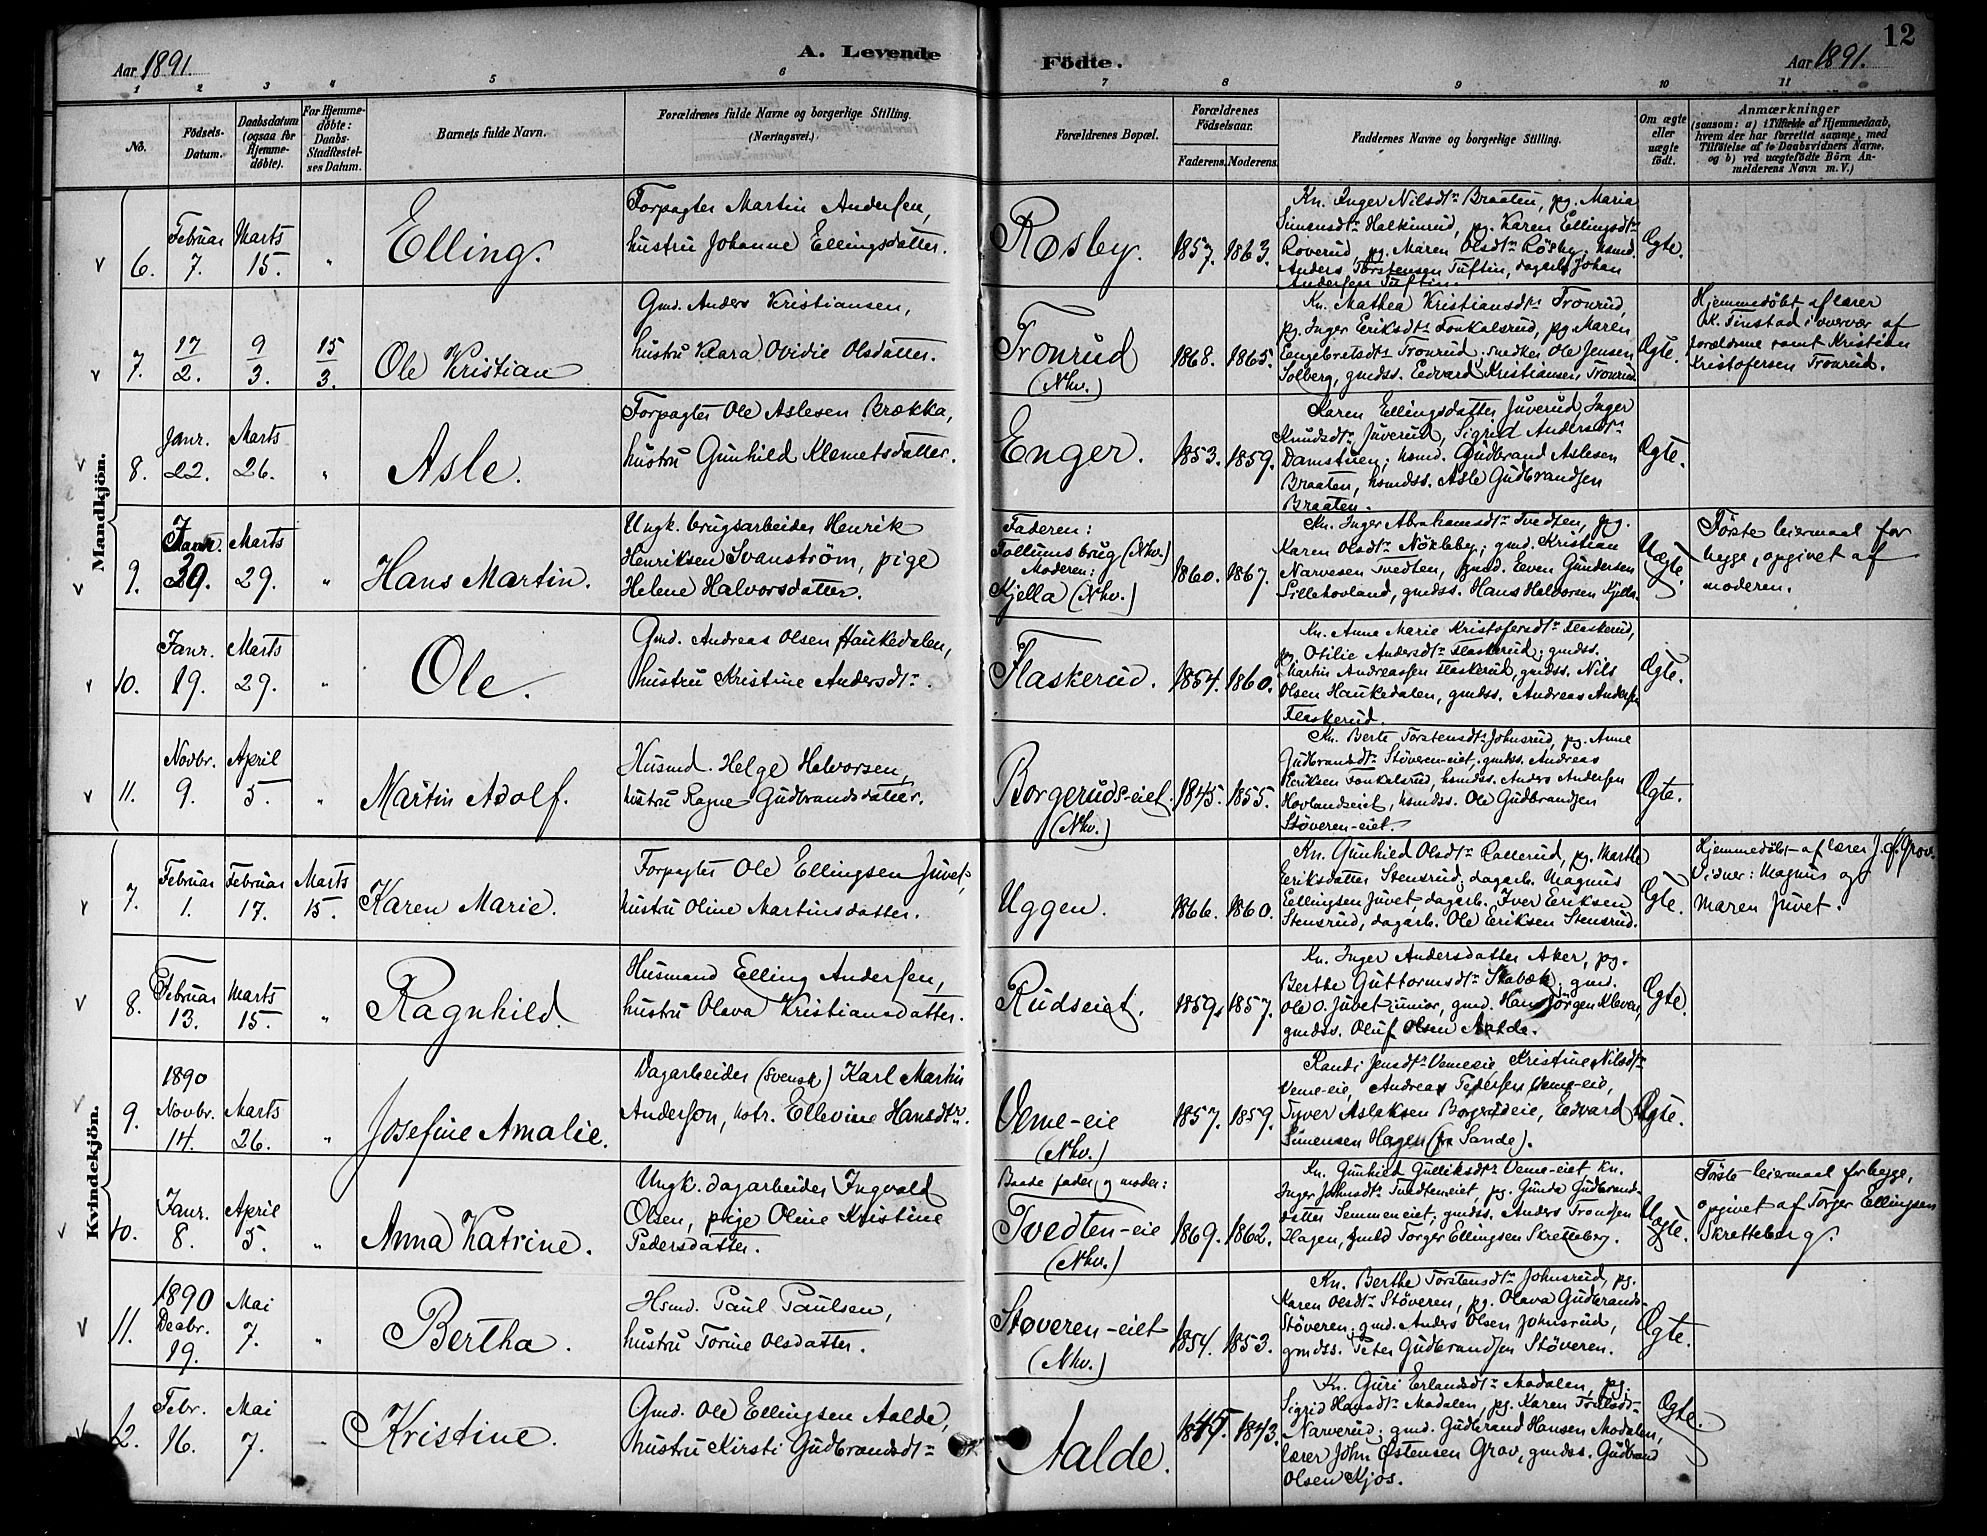 12
Aar 1891.
A. Levende
Födte.
Aar 1891.
1 2 3 4 5 6 7 8 9 10 11
No.
Födsels-
Datum.
Daabsdatum
(ogsaa for
Hjemme-
döbte).
For Hjemme-
døbte:
Daabs-
Stadfæstel-
ses Datum.
Barnets fulde Navn.
Forældrenes fulde Navne og borgerlige Stilling.
(Næringsvei.)
Forældrenes Bopæl.
Forældrenes
Födselsaar.
Faderens. Moderens.
Faddernes Navne og borgerlige Stilling.
Om ægte
eller
uægte
födt.
Anmærkninger
(saasom: a) i Tilfælde af Hjemmedaab,
hvem der har forrettet samme, med
Tilföielse af to Daabsvidners Navne,
og b) ved uægtefödte Börn An-
melderens Navn m. V.)
Mandkjön.
6.
Februar
7.
Marts
15.
"
Elling.
Forpagter Martin Andersen,
hustru Johanne Ellingsdatter.
Røsby.
1857. 1863.
Kn. Inger Nilsdtr Braaten, pg. Maria
Simensdtr Halkinrud, pg. Karen Ellingsdtr
Roverud, pg. Maren Olsdtr Røsby, hsmd.
Anders Torstensen Tuftin, dagarb. Johan
Andersen Tuftin.
Ægte.
7.
17/2.
9/3.
15/3.
Ole Kristian
Gmd. Anders Kristiansen,
hustru Klara Ovidie Olsdatter.
Tronrud
(Nhv.)
1868. 1865.
Kn. Mathea Kristiansdtr Tronrud,
pg. Inger Eriksdtr Fonkalsrud, pg. Maren
Engebretsdtr Tronrud, snedker Ole Jensen
Solberg, gmdss. Edvard Kristiansen Tronrud.
Ægte.
Hjemmedøbt af lærer
K. Finstad i overvær af
forældrene samt Kristian
Kristofersen Tronrud.
8.
Janr.
22.
Marts
26.
"
Asle.
Forpagter Ole Aslesen Brækka,
hustru Gunhild Klemetsdatter.
Enger.
1853. 1859.
Karen Ellingsdatter Juverud, Inger
Knudsdtr Juverud, Sigrid Andersdtr
Damstuen; hsmd. Gudbrand Aslesen
Braaten, hsmdss. Asle Gudbrandsen
Braaten.
Ægte.
9.
Janr.
30.
Marts
29.
"
Hans Martin.
Ungk. brugsarbeider Henrik
Henriksen Svanstrøm, pige
Helene Halvorsdatter.
Faderen:
Follumsbrug (Nhv.)
Moderen:
Kjella (Nhv.)
1860. 1867.
Kn. Inger Abrahamsdtr Tvedten, pg.
Karen Olsdtr Nökleby; gmd. Kristian
Narvesen Tvedten, gmd. Even Gundersen
Sillehovland, gmdss. Hans Halvorsen Kjella.
Uægte.
Første leiermaal for
begge, opgivet af
moderen.
10.
Janr.
19.
Marts
29.
"
Ole.
Gmd. Andreas Olsen Haukedalen,
hustru Kristine Andersdtr.
Flaskerud.
1854. 1860.
Kn. Anne Marie Kristofersdtr Flaskerud,
pg. Otilie Andersdtr Flaskerud; gmdss.
Martin Andreassen Flaskerud, gmdss. Nils
Olsen Haukedalen, gmdss. Andreas Andersen
Flaskerud.
Ægte.
11.
Novbr.
9.
April
5.
"
Martin Adolf.
Husmd. Helge Halvorsen,
hustru Ragne Gudbrandsdatter.
Borgeruds-eiet.
(Nhv.)
1845. 1855.
Kn. Berte Torstensdtr Johnsrud, pg. Anne
Gudbrandsdtr Støveren-eiet, gmdss. Andreas
Eriksen Fonkalsrud, hsmdss. Anders Andersen
Hovlandseiet, hsmdss. Ole Gudbrandsen
Støveren-eiet.
Ægte.
Kvindekjön.
7.
Februar
1.
Februar
17.
Marts
15.
Karen Marie.
Forpagter Ole Ellingsen Juvet,
hustru Oline Martinsdatter.
Uggen.
1866. 1860.
Kn. Gunhild Olsdtr Rallerud, pg. Marthe
Eriksdatter Stensrud; dagarb. Magnus
Ellingsen Juvet, dagarb. Iver Eriksen
Stensrud, dagarb. Ole Eriksen Stensrud.
Ægte.
Hjemmedøbt af lærer J. Ø. Grov.
Vidner: Magnus og
Maren Juvet.
8.
Februar
13.
Marts
15.
"
Ragnhild.
Husmand Elling Andersen,
hustru Olava Kristiansdatter.
Rudseiet.
1859. 1857.
Kn. Inger Andersdatter Aker, pg.
Berthe Guttormsdtr Skabæk; gmd.
Ole O. Juvet junior, gmd. Hans Jørgen Klevar,
gmdss. Oluf Olsen Aalde.
Ægte.
9.
1890
Novbr.
14.
Marts
26.
"
Josefine Amalie.
Dagarbeider (svensk) Karl Martin
Anderson, hstr. Ellevine Hansdtr.
Veme-eie
(Nhv.)
1857. 1859.
Randi Jensdtr Vemeeie Kristine Nilsdtr
Veme-eie, Andreas Pedersen Veme-eie,
Tyver Aslaksen Borgerudeie, Edvard
Simensen Hagen (fra Sande).
Ægte.
10.
Janr.
8.
April
5.
"
Anna Katrine.
Ungk. dagarbeider Ingvald
Olsen, pige Oline Kristine
Pedersdatter.
Baade fader og moder:
Tvedten-eie
(Nhv.)
1869. 1862.
Kn. Gunhild Gulliksdtr Veme-eiet, Kn.
Inger Johnsdtr Tvedteneiet, pg. Gunda Gudbrands-
datter Semmeneiet; gmdss. Anders Trondsen
Hagen, gmd. Torger Ellingsen Skretteberg.
Uægte.
Første leiermaal for begge,
opgivet af Torger Ellingsen
Skretteberg.
11.
1890
Decbr.
19.
Mai
7.
"
Bertha.
Hsmd. Paul Paulsen,
hustru Torine Olsdatter.
Støveren-eiet
(Nhv.)
1854. 1853.
Kn. Berthe Torstensdtr Johnsrud, pg.
Karen Olsdtr Støveren, pg. Olava Gudbrands-
Støveren; gmd. Anders Olsen Johnsrud,
gmdss. Peter Gudbrandsen Støveren.
Ægte.
12.
Febr.
16.
Mai
7.
Kristine.
Gmd. Ole Ellingsen Aalde,
hustru Kirsti Gudbrandsdtr
Aalde.
1845. 1843.
Kn. Guri Erlandsdtr Modalen, pg.
Sigrid Hansdtr Modalen, pg. Karen
Narverud; gmd. Gudbrand Hansen Modalen,
lærer John Østensen Grov, gmdss. Gudbrand
Olsen Kjos.
Ægte.